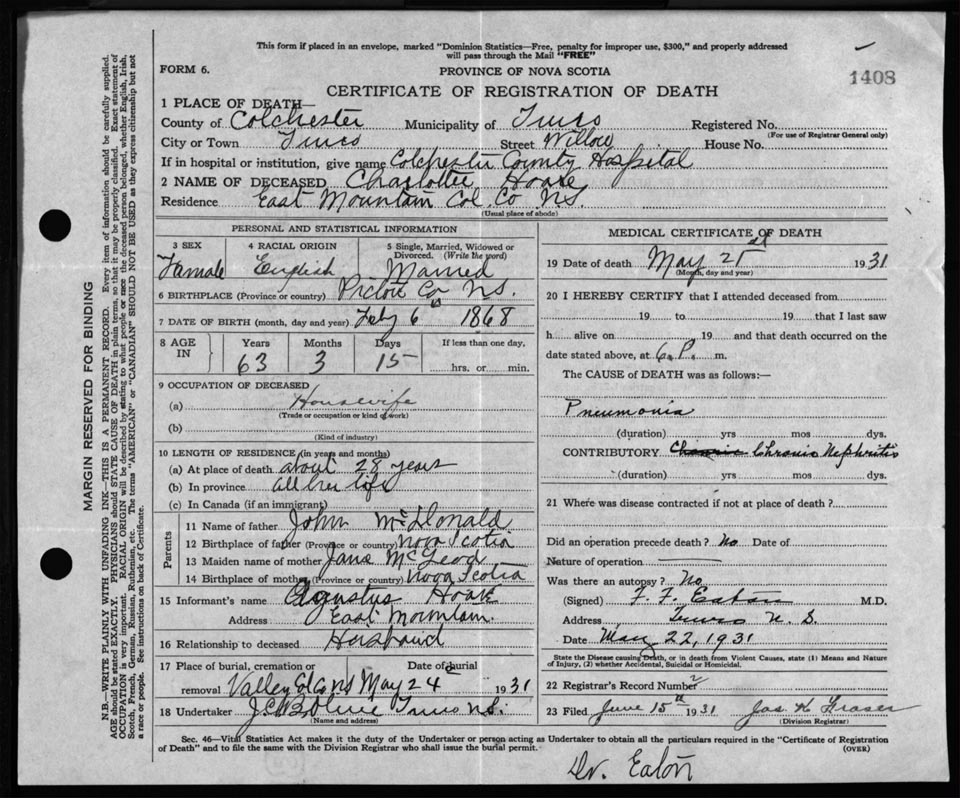 This form if placed in an envelope, marked "Dominion Statistics—Free, penalty for improper use, $300," and properly addressed
will pass through the Mail "FREE"
FORM 6.
PROVINCE OF NOVA SCOTIA
1408
CERTIFICATE OF REGISTRATION OF DEATH
1 PLACE OF DEATH—
County of Colchester Municipality of Truro Registered No.
(For use of Registrar General only)
City or Town Truro Street Willow House No.
If in hospital or institution, give name Colchester County Hospital
2 NAME OF DECEASED Charlotte Hoare
Residence East Mountain Col. Co NS.
(Usual place of abode)
PERSONAL AND STATISTICAL INFORMATION
3 SEX Female
4 RACIAL ORIGIN English
5 Single, Married, Widowed or Divorced. (Write the word) Married
6 BIRTHPLACE (Province or country) Pictou Co NS.
7 DATE OF BIRTH (month, day and year) Feby 6th 1868
8 AGE IN Years 63 Months 3 Days 15 If less than one day, hrs. or min.
9 OCCUPATION OF DECEASED
(a) Housewife
(Trade or occupation or kind of work)
(b)
(Kind of industry)
10 LENGTH OF RESIDENCE (in years and months)
(a) At place of death about 28 years
(b) In province all her life
(c) In Canada (if an immigrant)
Parents
11 Name of father John McDonald
12 Birthplace of father (Province or country) Nova Scotia
13 Maiden name of mother Jane McLeod
14 Birthplace of mother (Province or country) Nova Scotia
15 Informant's name Agustus Hoare
Address East Mountain.
16 Relationship to deceased Husband
17 Place of burial, cremation or removal Valley Col Co NS Date of burial May 24 1931
18 Undertaker Truro N.S.
(Name and address)
MEDICAL CERTIFICATE OF DEATH
19 Date of death May 21st 1931
(Month, day and year)
20 I HEREBY CERTIFY that I attended deceased from
19 to 19 that I last saw
h alive on 19 and that death occurred on the
date stated above, at 6 P. m.
The CAUSE of DEATH was as follows:—
Pneumonia
(duration) yrs mos dys.
CONTRIBUTORY Chronic Nephritis
(duration) yrs mos dys.
21 Where was disease contracted if not at place of death?
Did an operation precede death? No Date of
Nature of operation
Was there an autopsy? No
(Signed) F. F. Eaton M.D.
Address Truro N. S.
Date May 22, 1931
State the Disease causing Death, or in death from Violent Causes, state (1) Means and Nature
of Injury, (2) whether Accidental, Suicidal or Homicidal.
22 Registrar's Record Number
23 Filed June 15th 1931 Jas H Fraser
(Division Registrar)
Sec. 46—Vital Statistics Act makes it the duty of the Undertaker or person acting as Undertaker to obtain all the particulars required in the "Certificate of Registration
of Death" and to file the same with the Division Registrar who shall issue the burial permit.
(OVER)
Dr. Eaton
MARGIN RESERVED FOR BINDING
N.B.—WRITE PLAINLY WITH UNFADING INK—THIS IS A PERMANENT RECORD. Every item of information should be carefully supplied.
AGE should be stated EXACTLY. PHYSICIANS should STATE CAUSE OF DEATH in plain terms, so that it may be properly classified. Exact statement of
OCCUPATION is very important. RACIAL ORIGIN will be described by stating to what people or race the deceased person belonged, whether English, Irish,
Scotch, French, German, Russian, Ruthenian, etc. The terms "AMERICAN" or "CANADIAN" SHOULD NOT BE USED as they express citizenship but not
a race or people. See instructions on back of Certificate.